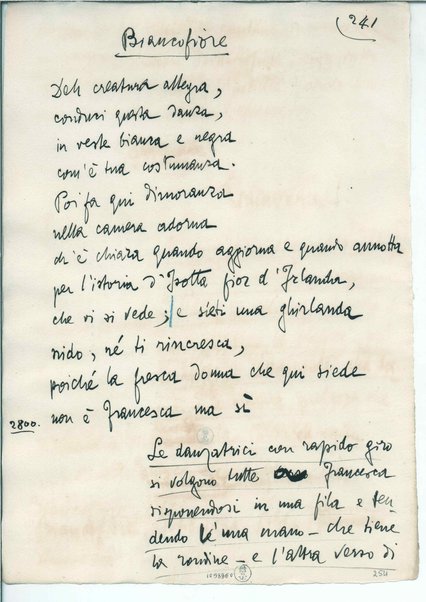 241
Biancofiore
Deh creatura allegra,
conduci questa danza,
in veste bianca e negra
com'è tua costumanza.
Poi fa qui dimoranza
nella camera adorna
ch'è chiara quando aggiorna e quando annotta
per l'istoria d'Isotta fior d'Irlanda,
che vi si vede; e sieti una ghirlanda
nido, né ti rincresca,
poiché la fresca donna che qui siede
2800. non è Francesca ma sì
Le danzatrici con rapido giro
si volgono tutte a Francesca
disponendosi in una fila e ten-
dendo l'una mano – che tiene
la rondine – e l'altra verso di
254